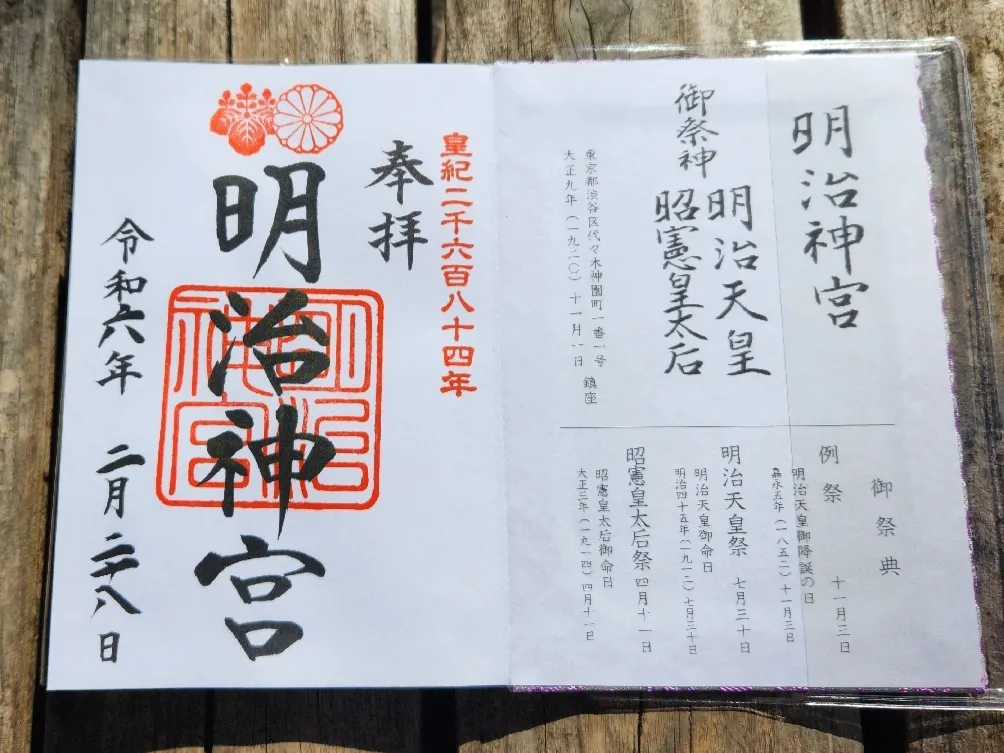 明治神宮
御祭神
明治天皇
昭憲皇太后
東京都渋谷区代々木神園町一番一号
大正九年(一九二〇)十一月一日 鎮座
御祭典
例祭 十一月三日
明治天皇御降誕の日
嘉永五年(一八五二)十一月三日
明治天皇祭 七月三十日
明治天皇御命日
明治四十五年(一九一二)七月三十日
昭憲皇太后祭 四月十一日
昭憲皇太后御命日
大正三年(一九一四)四月十一日
皇紀二千六百八十四年
奉拝
明治神宮
明治神宮
令和六年 二月 二十八日